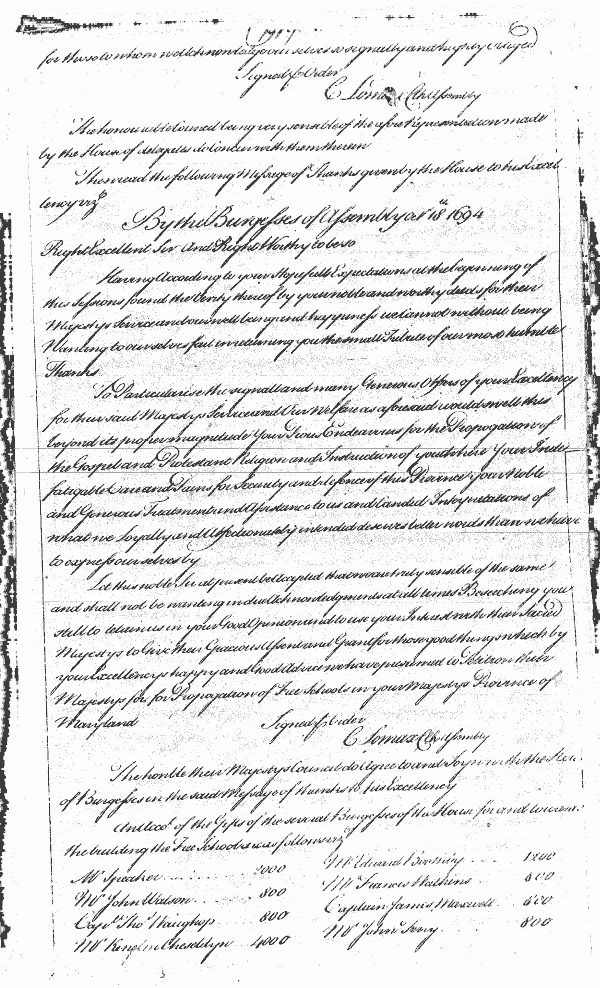 for
Signed p Order
C Lomax Clk Assembly
The honourable Councel being very sensible of the afore Representation made
by the House of delegates do Concur with them therein
Then read the following Message of Thanks given by the House to his Excel
lency vizt
By the Burgesses of Assembly 18th 1694
Right Excellent Sir And Right Worthy to be so
Having According to your Hopefull Expectations at the beginning of
this Sessions found the Verity thereof by your noble and worthy deeds for their
Majestys Service and our well being and happiness we cannot without being
Wanting to ourselves fail in returning you the small Tribute of our most humble
Thanks
To Particularise the signall and many Generous Offers of your Excellency
for their said Majestys Service and Our Welfare as aforesaid would swell this
beyond its proper magnitude Your Pious Endeavours for the Propagation of
the Gospel and Protestant Religion and Instruction of youth here Your Inde
fatigable Care and Pains for Security and defence of this Province your Noble
and Generous Treatments and Assistance to us and Candid Interpretations of
what we Loyally and Affectionately intended deserves better words than we have
to express ourselves by
Let this noble Sir at present be Accepted that we are truly sensible of the same
and shall not be wanting in due Acknowledgments at all times Beseeching you
still to retain us in your Good Opinion and to use your Interest with their Sacred
Majestys to Give their Gracious Assent and Grant for those good things which by
your Excellencys happy and Good Advice we have presumed to Petition their
Majestys for for Propagation of Free Schools in your Majestys Province of
Maryland Signed p Order
C Lomax Clk Assembly
The honble their Majestys Council do Agree to and Joyn with the House
of Burgesses in the said Message of thanks to his Excellency
An Accot of the Gifts of the several Burgesses of the House for and towards
the building the Free Schools was as follows vizt
Mr Speaker 2000
Mr John Watson 800
Capt Thos Waughop 800
Mr Kenelm Cheseldyn 4000
Mr Edward 1200
Mr Francis Watkins 800
Captain James Maxwell 800
Mr John 800